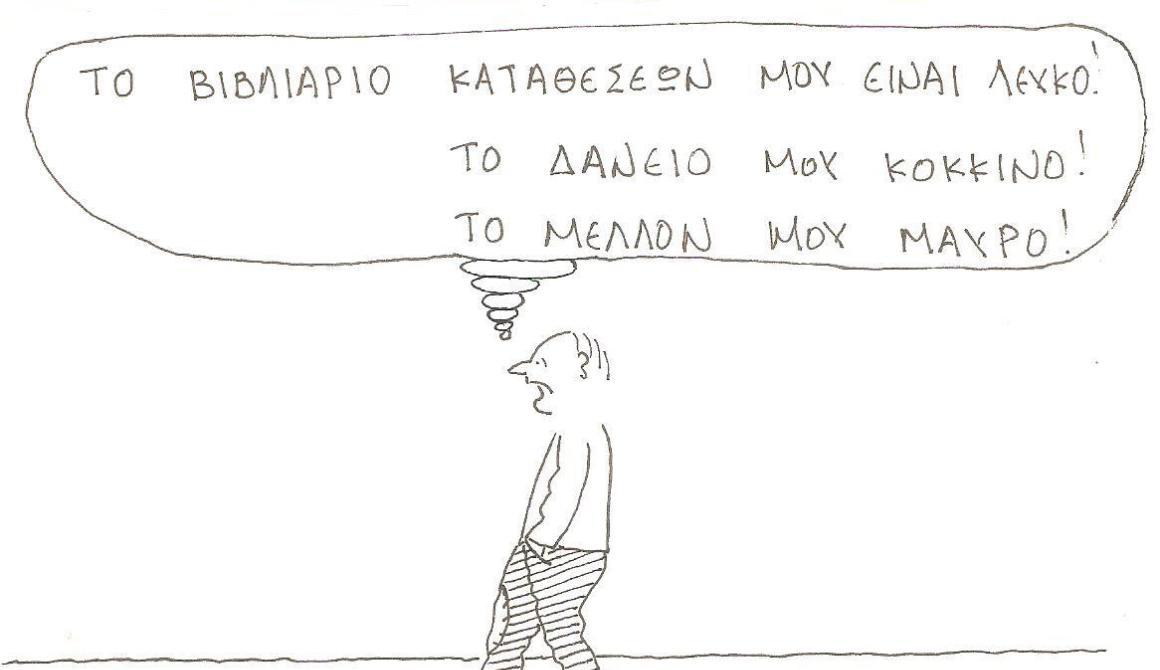 ΤΟ ΒΙΒΛΙΑΡΙΟ ΚΑΤΑΘΕΣΕΩΝ ΜΟΥ ΕΙΝΑΙ ΛΕΥΚΟ!
ΤΟ ΔΑΝΕΙΟ ΜΟΥ ΚΟΚΚΙΝΟ!
ΤΟ ΜΕΛΛΟΝ ΜΟΥ ΜΑΥΡΟ!